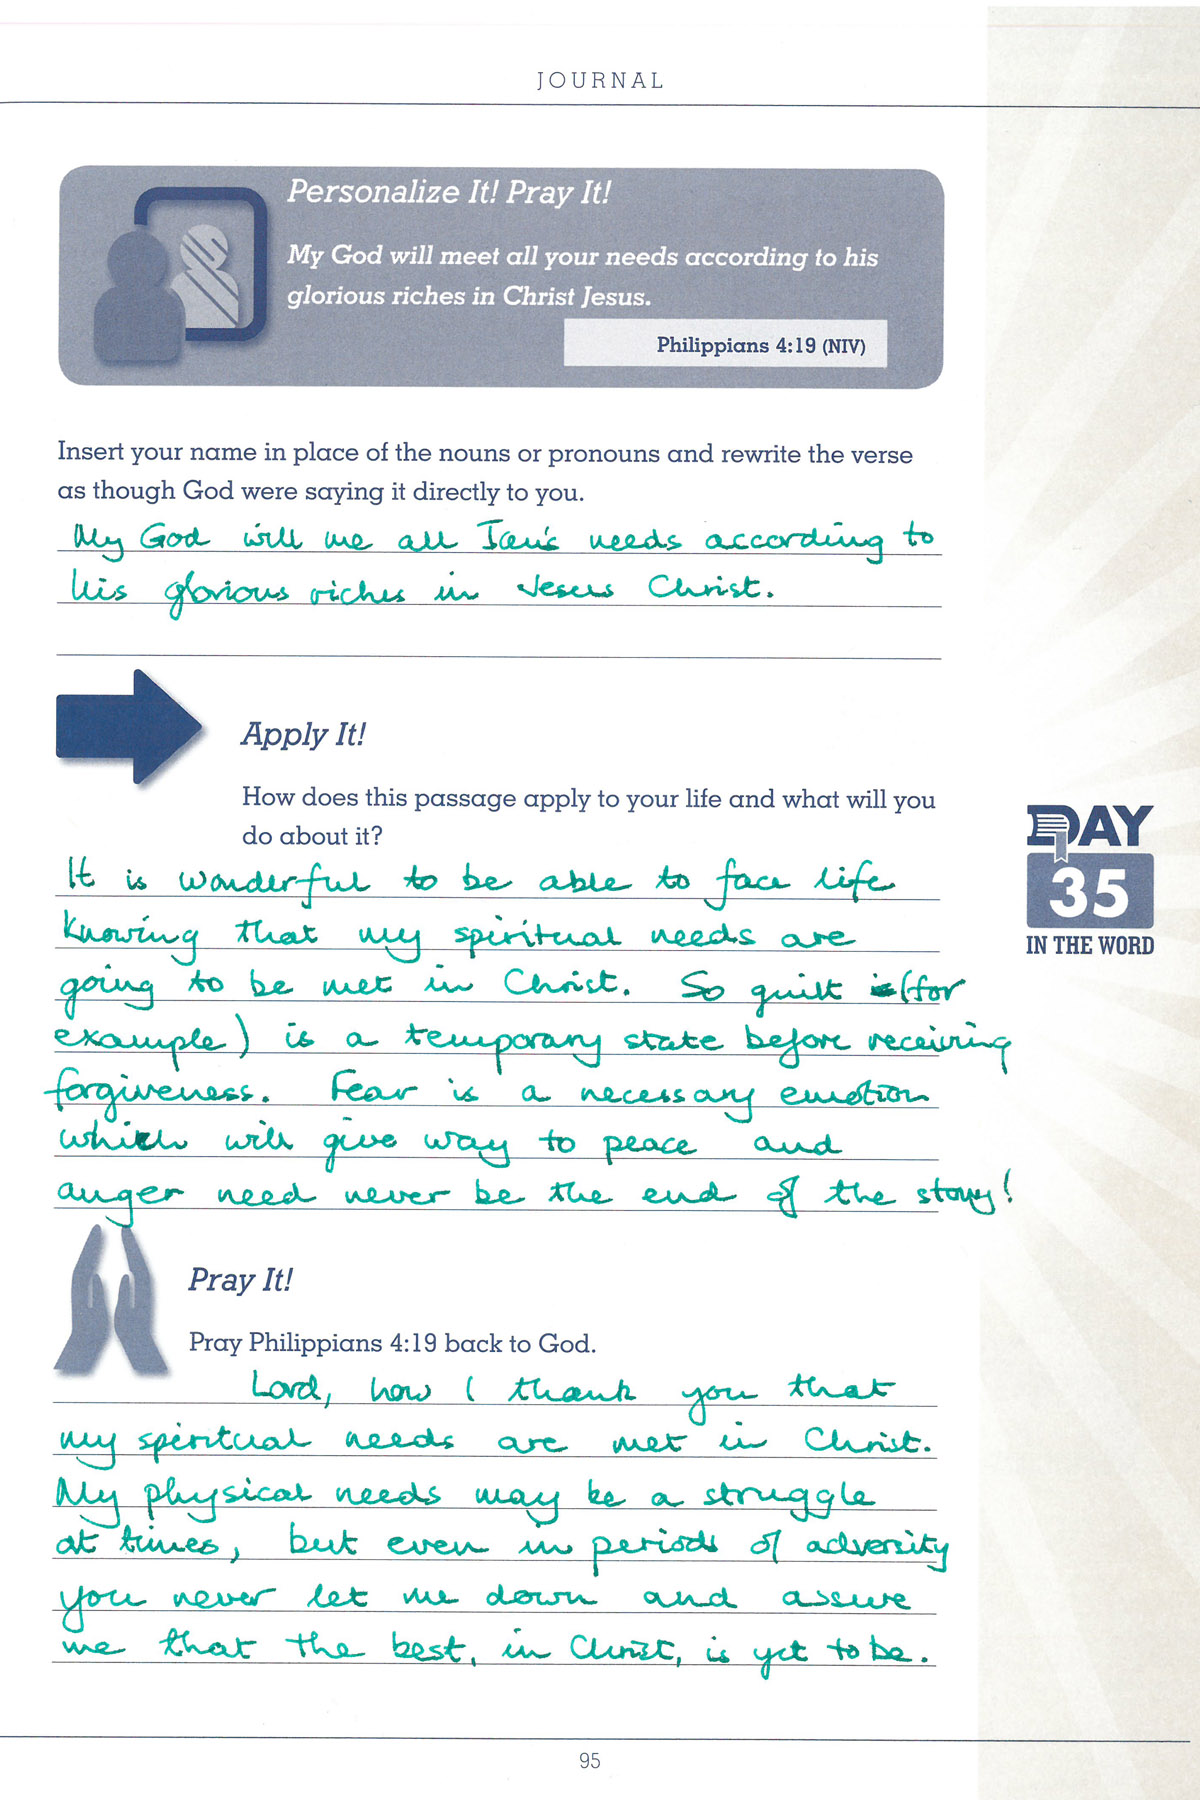 JOURNAL
Personalize It! Pray It!
My God will meet all your needs according to his
glorious riches in Christ Jesus.
Philippians 4:19 (NIV)
Insert your name in place of the nouns or pronouns and rewrite the verse
as though God were saying it directly to you.
My God will me all Ian's needs according to
his glorious riches in Jesus Christ.
Apply It!
How does this passage apply to your life and what will you
do about it?
It is wonderful to be able to face life
knowing that my spiritual needs are
going to be met in Christ. So guilt (for
example) is a temporary state before receiving
forgiveness. Fear is a necessary emotion
which will give way to peace and
anger need never be the end of the story!
DAY
35
IN THE WORD
Pray It!
Pray Philippians 4:19 back to God.
Lord, how I thank you that
my spiritual needs are met in Christ.
My physical needs may be a struggle
at times, but even in periods of adversity
you never let me down and assure
me that the best, in Christ, is yet to be.
95